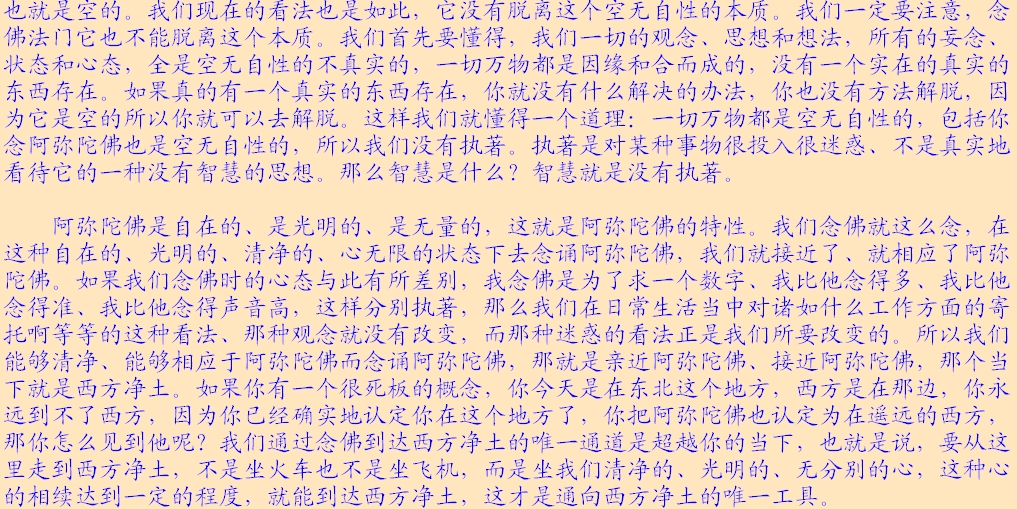 也就是空的。我们现在的看法也是如此，它没有脱离这个空无自性的本质。我们一定要注意，念
佛法门它也不能脱离这个本质。我们首先要懂得，我们一切的观念、思想和想法，所有的妄念、
状态和心态，全是空无自性的不真实的，一切万物都是因缘和合而成的，没有一个实在的真实的
东西存在。如果真的有一个真实的东西存在，你就没有什么解决的办法，你也没有方法解脱，因
为它是空的所以你就可以去解脱。这样我们就懂得一个道理：一切万物都是空无自性的，包括你
念阿弥陀佛也是空无自性的，所以我们没有执著。执著是对某种事物很投入很迷惑、不是真实地
看待它的一种没有智慧的思想。那么智慧是什么？智慧就是没有执著。
阿弥陀佛是自在的、是光明的、是无量的，这就是阿弥陀佛的特性。我们念佛就这么念，在
这种自在的、光明的、清净的、心无限的状态下去念诵阿弥陀佛，我们就接近了、就相应了阿弥
陀佛。如果我们念佛时的心态与此有所差别，我念佛是为了求一个数字、我比他念得多、我比他
念得准、我比他念得声音高，这样分别执著，那么我们在日常生活当中对诸如什么工作方面的寄
托啊等等的这种看法、那种观念就没有改变，而那种迷惑的看法正是我们所要改变的。所以我们
能够清净、能够相应于阿弥陀佛而念诵阿弥陀佛，那就是亲近阿弥陀佛、接近阿弥陀佛，那个当
下就是西方净土。如果你有一个很死板的概念，你今天是在东北这个地方，西方是在那边，你永
远到不了西方，因为你已经确实地认定你在这个地方了，你把阿弥陀佛也认定为在遥远的西方，
那你怎么见到他呢？我们通过念佛到达西方净土的唯一通道是超越你的当下，也就是说，要从这
里走到西方净土，不是坐火车也不是坐飞机，而是坐我们清净的、光明的、无分别的心，这种心
的相续达到一定的程度，就能到达西方净土，这才是通向西方净土的唯一工具。